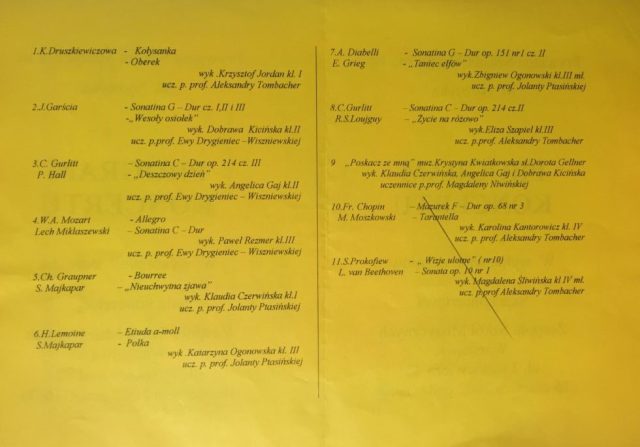 1.K.Druszkiewiczowa - Kołysanka
- Oberek
wyk .Krzysztof Jordan kl. I
ucz. p. prof. Aleksandry Tombacher
2.J.Garścia - Sonatina G – Dur cz. I,II i III
-„Wesoły osiołek”
wyk. Dobrawa Kicińska kl.II
ucz. p.prof. Ewy Drygieniec – Wiszniewskiej
3.C. Gurlitt – Sonatina C – Dur op. 214 cz. III
P. Hall - „Deszczowy dzień”
wyk. Angelica Gaj kl.II
ucz. p.prof. Ewy Drygieniec – Wiszniewskiej
4.W.A. Mozart - Allegro
Lech Miklaszewski – Sonatina C – Dur
wyk. Paweł Rezmer kl.III
ucz. p.prof. Ewy Drygieniec – Wiszniewskiej
5.Ch. Graupner - Bourree
S. Majkapar - „Nieuchwytna zjawa”
wyk. Klaudia Czerwińska kl.I
ucz. p. prof. Jolanty Ptasińskiej
6.H.Lemoine – Etiuda a-moll
S.Majkapar - Polka
wyk .Katarzyna Ogonowska kl. III
ucz. p. prof. Jolanty Ptasińskiej
7.A. Diabelli - Sonatina G – Dur op. 151 nr1 cz. II
E. Grieg - „Taniec elfów”
wyk.Zbigniew Ogonowski kl.III ml.
ucz. p. prof. Jolanty Ptasińskiej
8.C.Gurlitt - Sonatina C – Dur op. 214 cz.II
R.S.Loujguy – „Życie na różowo”
wyk.Eliza Szapiel kl.III
ucz. p. prof. Aleksandry Tombacher
9 „Poskacz ze mną” muz. Krystyna Kwiatkowska sł.Dorota Gellner
wyk. Klaudia Czerwińska, Angelica Gaj i Dobrawa Kicińska
uczennice p.prof. Magdaleny Niwińskiej
10.Fr. Chopin – Mazurek F – Dur op. 68 nr 3
M. Moszkowski - Tarantella
wyk. Karolina Kantorowicz kl. IV
ucz. p. prof. Aleksandry Tombacher
11.S.Prokofiew - „ Wizje ulotne” ( nr10)
L. van Beethoven – Sonata op. 10 nr 1
wyk. Magdalena Śliwińska kl IV ml.
ucz. p.prof Aleksandry Tombacher